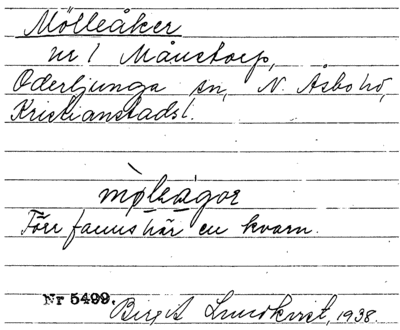 Mölleåker
nr 1 Månstorp,
Oderljunga sn, N. Åsbo hd,
Kristianstads l.
mø̀leågor
Förr fanns här en kvarn.
Nr 5499.
Birgit Lundkvist, 1938.